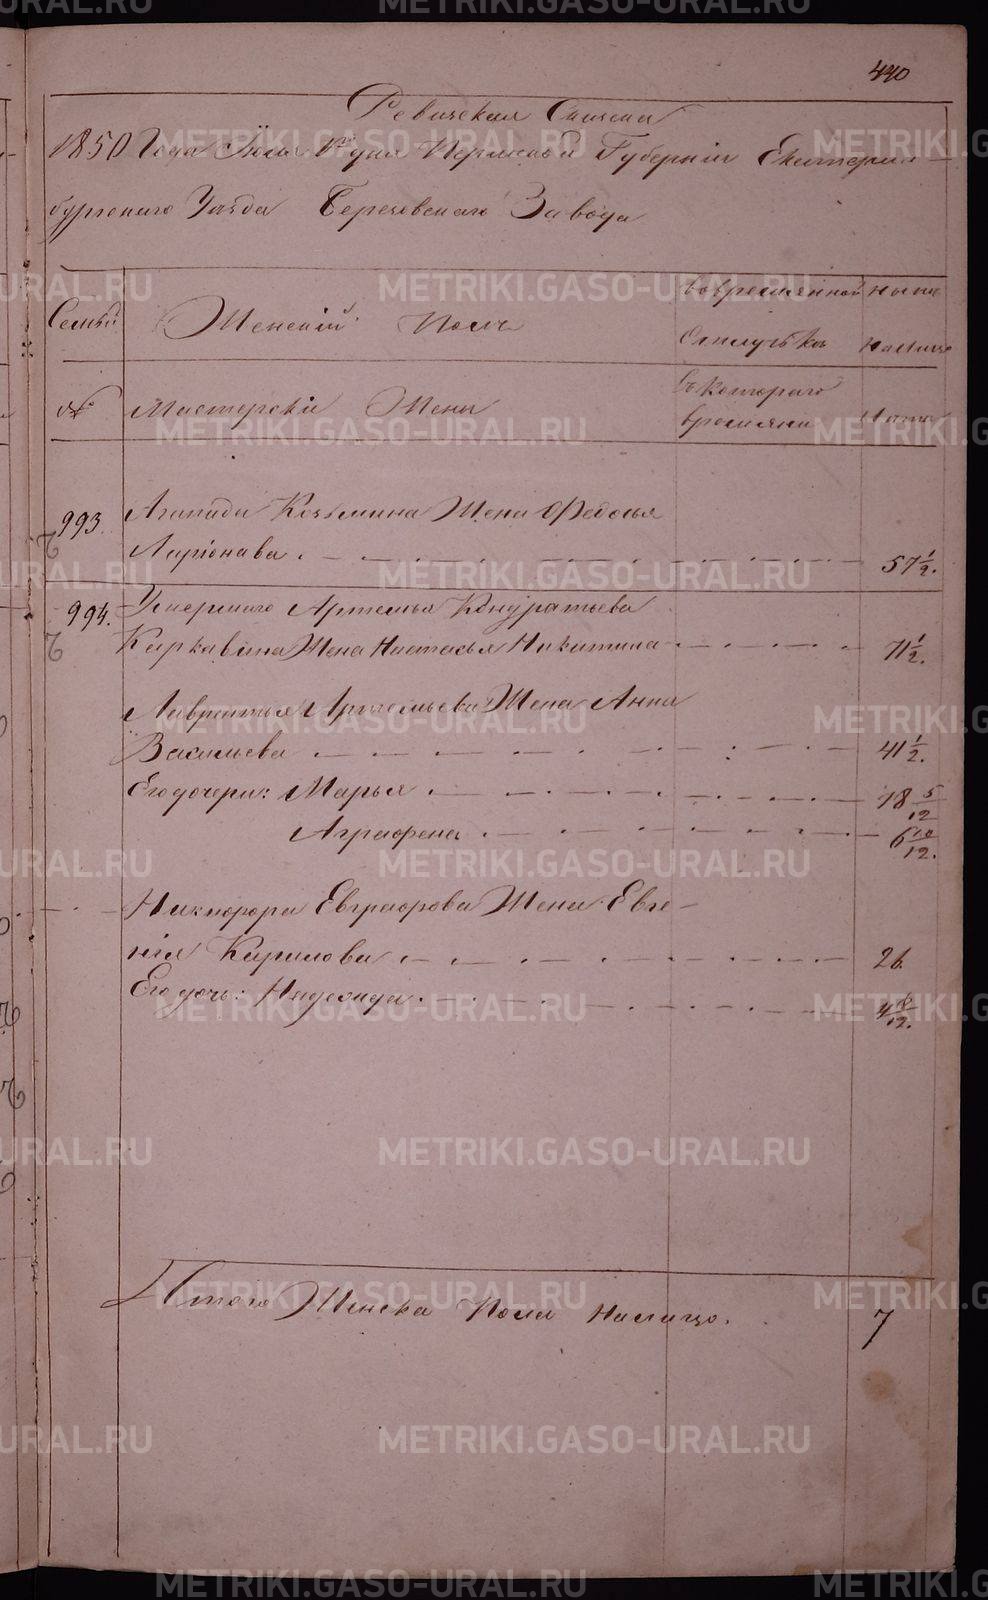 440
Ревижская Сказка
1850 Года Июля 1го дня Пермской Губернии Екатерин-
бургскаго Уезда Березовскаго Завода
Семьи Женский Полъ Вовременной ныне
Отлучке налицо
№ Мастерские Жены съ котораго Лета
времяни
993. Агапида Козьмина Жена Федосья
Ларионава 57 1/2.
994. Умершаго Артемья Кондратьева
Каркавина Жена Настасья Никитина 71 1/2.
Лаврентья Артемьева Жена Анна
Васильева 41 1/2.
Его дочери: Марья 18 5/12
Аграфена 6 10/12.
Никифора Евграфова Жена Евге-
ния Карилова 26
Его дочь: Надежда 4 8/12.
Итого Женска Пола Налицо. 7
METRIKI.GASO-URAL.RU